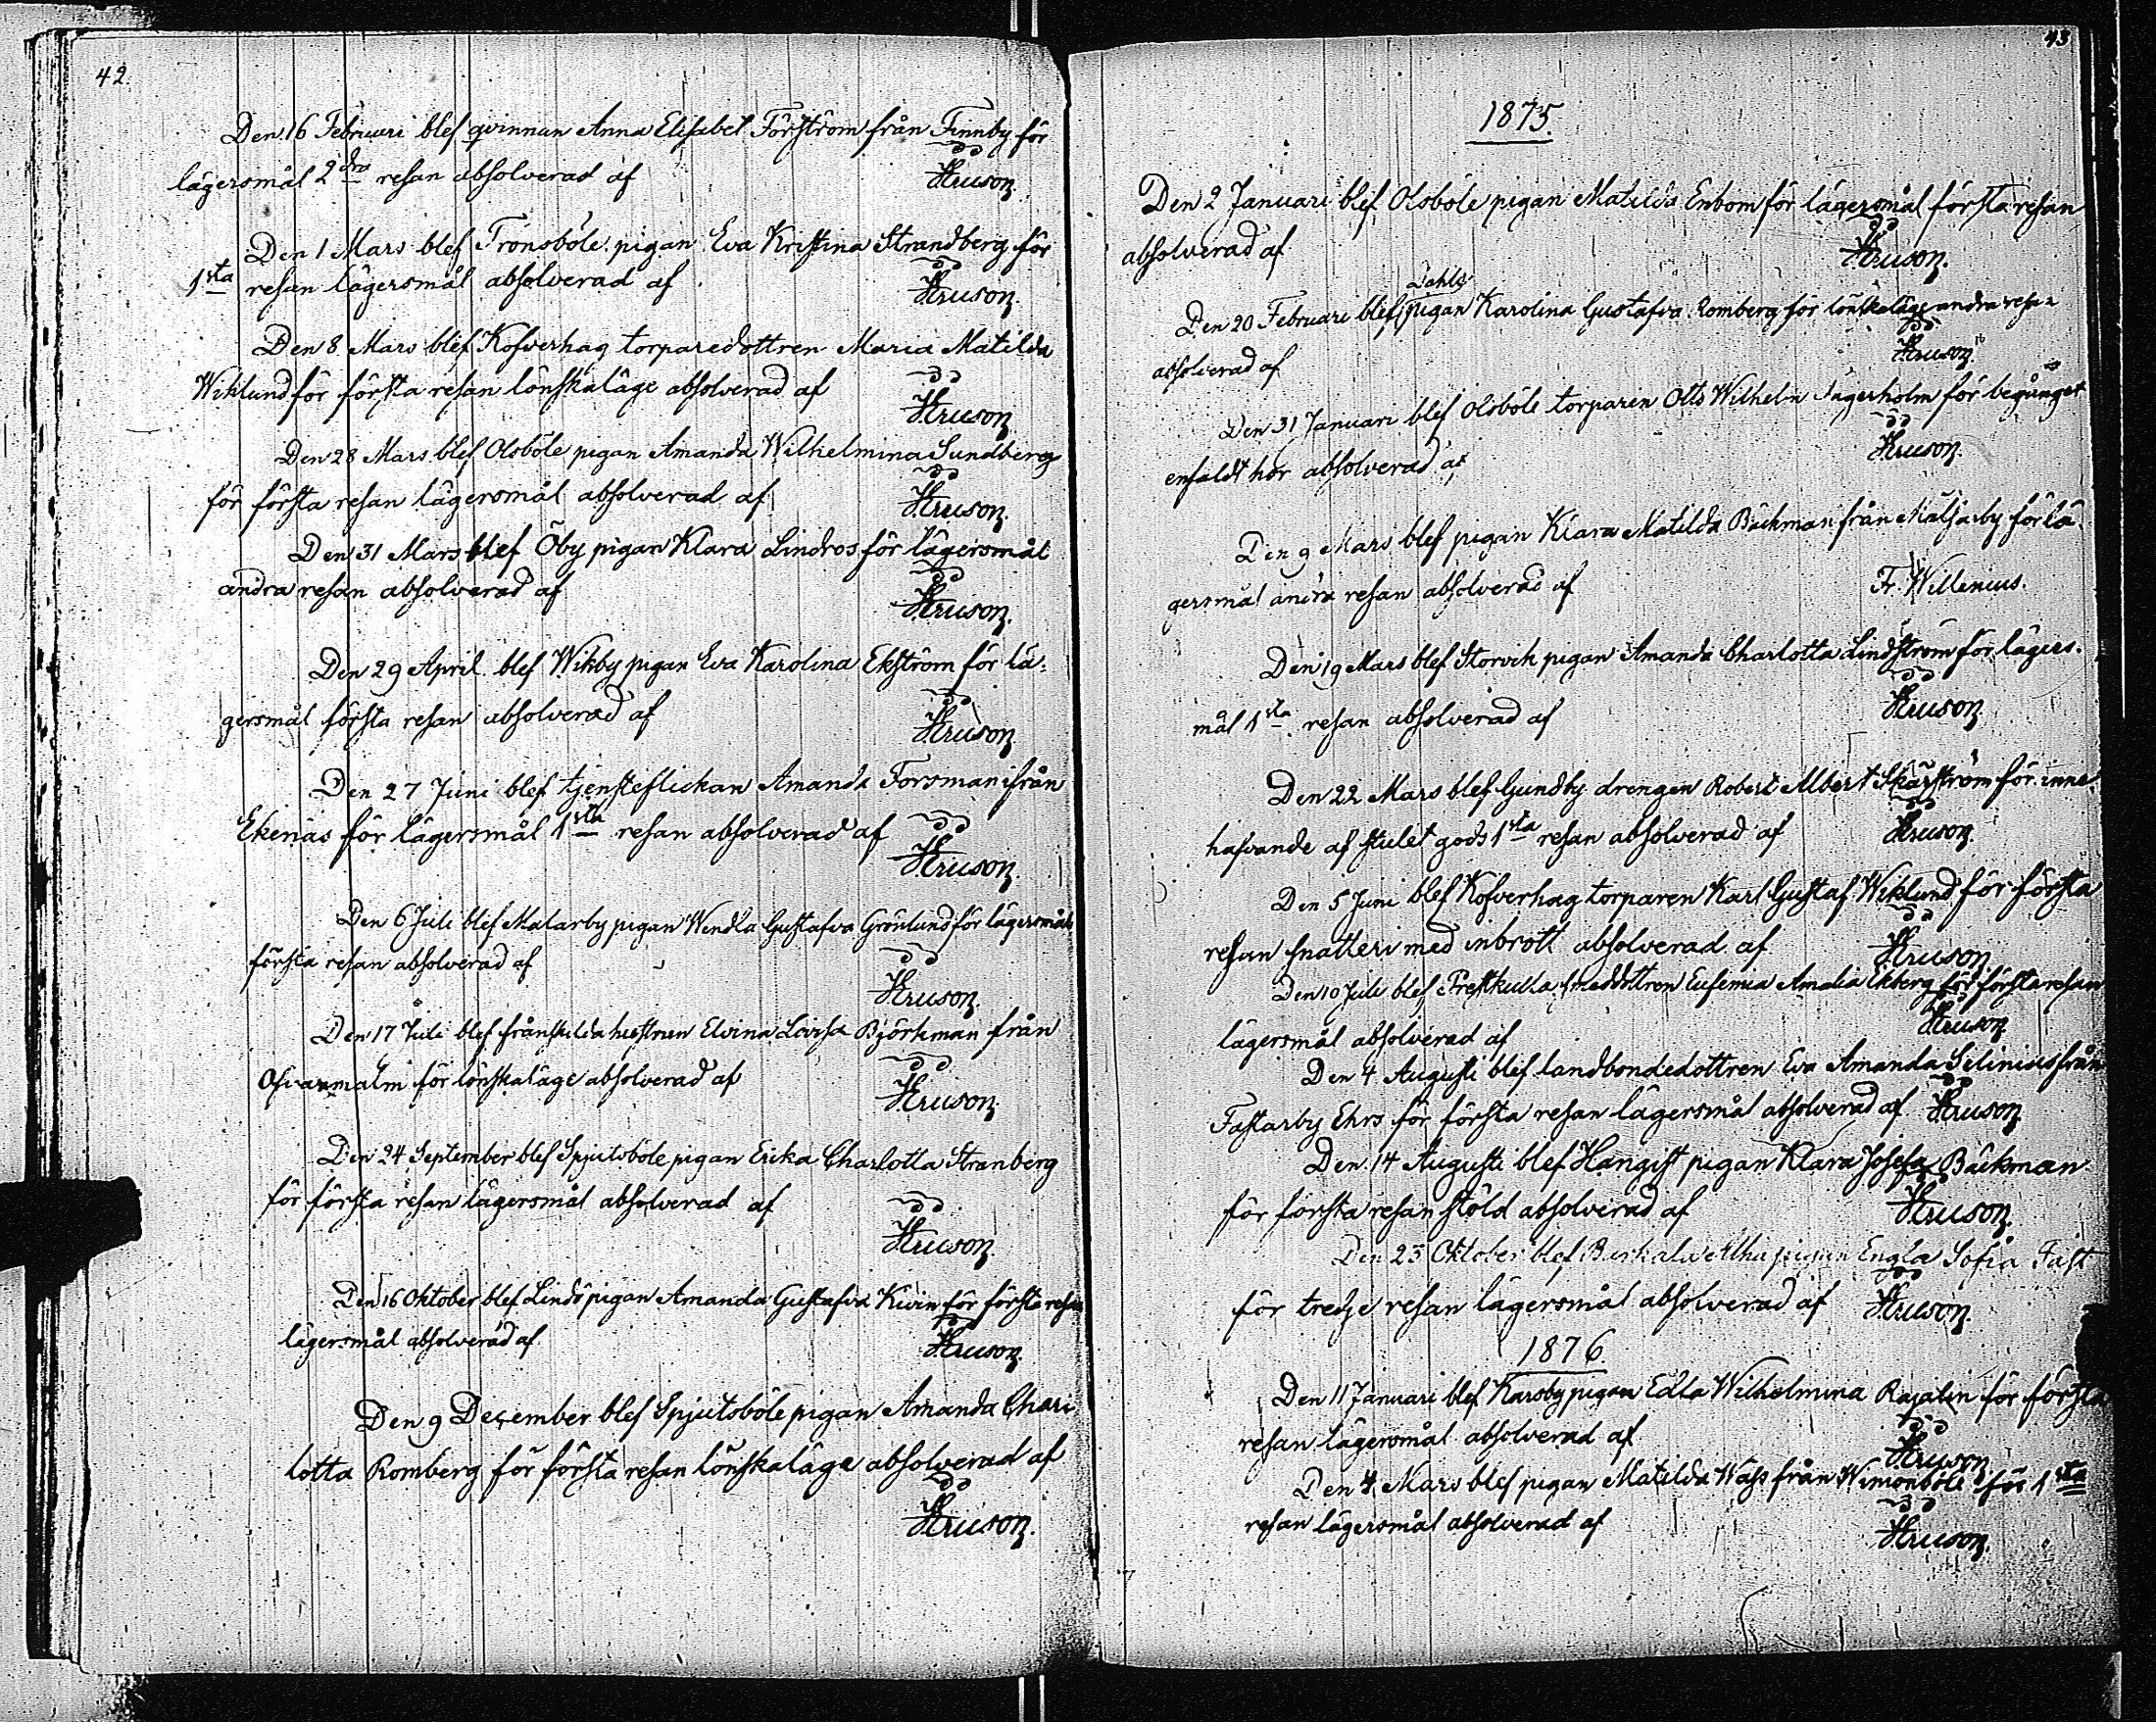 42.
Den 16 Februari blef qvinnan Anna Elisabet Förström från Finnby för
lägersmål 2dra resan absolverad af Kruson.
Den 1 Mars blef Tronsböle pigan Eva Kristina Strandberg för
1sta resan lägersmål absolverad af Kruson.
Den 8 Mars blef Kofverhag torparedottren Maria Matilda
Wiklund för första resan lönskaläge absolverad af Kruson
Den 28 Mars blef Olsböle pigan Amanda Wilhelmina Sundberg
för första resan lägersmål absolverad af Kruson.
Den 31 Mars blef Öby pigan Klara Lindros för lägersmål
andra resan absolverad af Kruson.
Den 29 April blef Wikby pigan Eva Karolina Ekström för lä-
gersmål första resan absolverad af Kruson
Den 27 Juni blef tjensteflickan Amanda Forsman ifrån
Ekenäs för lägersmål 1sta resan absolverad af Kruson
Den 6 Juli blef Malarby pigan Wendla Gustafva Grönlund för lägersmål
första resan absolverad af Kruson.
Den 17 Juli blef frånskilda hustrun Elvina Lovisa Björkman från
för lönskaläge absolverad af Kruson.
Den 24 September blef Spjutsböle pigan Ericka Charlotta Stranberg
för första resan lägersmål absolverad af Kruson.
Den 16 Oktober blef Lindö pigan Amanda Gustafva Kivin för första resan
lägersmål absolverad af Kruson.
Den 9 December blef Spjutsböle pigan Amanda Char-
lotta Romberg för första resan lönskaläge absolverad af
Kruson.
43
1875.
Den 2 Januari blef Olsböle pigan Matilda Enbom för lägersmål första resan
absolverad af Kruson.
Dahls
Den 20 Februari blef pigan Karolina Gustafva Romberg för lönskaläge andra resan
absolverad af Kruson.
Den 31 Januari blef Olsböle torparen Otto Wilhelm Sagerholm för begånget
enfaldt hor absolverad af Kruson.
Den 9 Mars blef pigan Klara Matilda Bäckman från för lä
gersmål andra resan absolverad af Fr. Willenius.
Den 19 Mars blef Storvik pigan Amanda Charlotta Lindström för lägers-
mål 1sta resan absolverad af Kruson
Den 22 Mars blef Gundby drengen Robert Albert Skärström för inne-
hafvande af stulet gods 1sta resan absolverad af Kruson.
Den 5 Juni blef Kofverhag torparen Karl Gustaf Wiklund för första
resan snatteri med inbrott absolverad af Kruson
Den 10 Juli blef Prestkulla Eufemia Amalia Ekberg för första resan
lägersmål absolverad af Kruson
Den 4 Augusti blef landbondedottren Eva Amanda Selinius från
Fastarby Ehrs för första resan lägersmål absolverad af Kruson
Den 14 Augusti blef Hangist pigan Klara Josefa Bäckman
för första resan stöld absolverad af Kruson.
Den 23 Oktober blef pigan Engla Sofia Fast
för tredje resan lägersmål absolverad af Kruson.
1876
Den 11 Januari blef Karsby pigan Edla Wilhelmina Rajalin för första
resan lägersmål absolverad af Kruson
Den 4 Mars blef pigan Matilda Wass från för 1sta
resan lägersmål absolverad af Kruson.